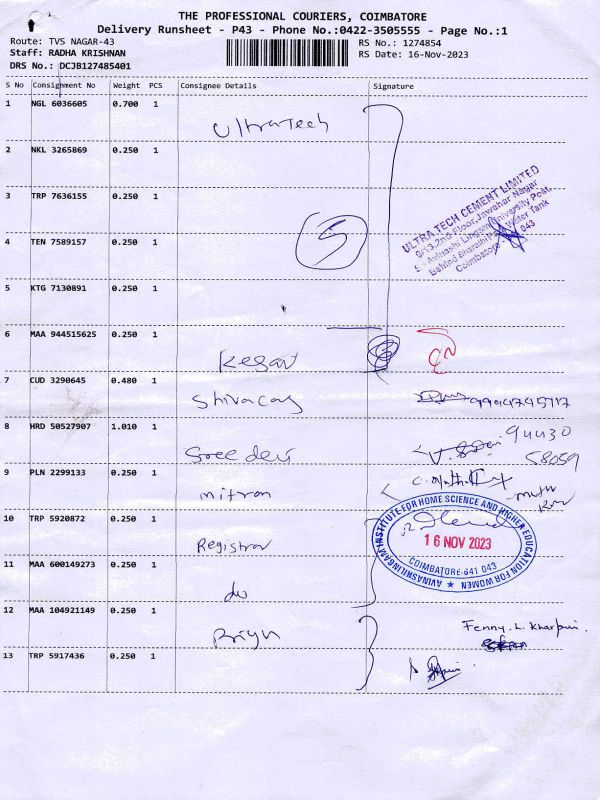 THE PROFESSIONAL COURIERS, COIMBATORE
Delivery Runsheet - P43 - Phone No.:0422-3505555 - Page No.:1
Route: TVS NAGAR-43
RS No.: 1274854
Staff: RADHA KRISHNAN
RS Date: 16-Nov-2023
DRS No.: DCJB127485401
S No Consignment No Weight PCS Consignee Details Signature
1 NGL 6036605 0.700 1
Ultratech
2 NKL 3265869 0.250 1
3 TRP 7636155 0.250 1
ULTRA TECH CEMENT LIMITED
9/13,2nd Floor,Jawahar Nagar
Avinashi Lingam University Post,
Behind Bharathi Water Tank
Coimbatore - 043
5
4 TEN 7589157 0.250 1
5 KTG 7130891 0.250 1
6 MAA 944515625 0.250 1
Kesav
7 CUD 3290645 0.480 1
8 HRD 50527907 1.010 1
94430
58059
Sree devi
9 PLN 2299133 0.250 1
mitron
10 TRP 5920872 0.250 1
Registrar
AVINASHILINGAM INSTITUTE FOR HOME SCIENCE AND HIGHER EDUCATION FOR WOMEN
16 NOV 2023
COIMBATORE-641 043
11 MAA 600149273 0.250 1
do
12 MAA 104921149 0.250 1
Priya
Fenny. L. Kharpuri
13 TRP 5917436 0.250 1